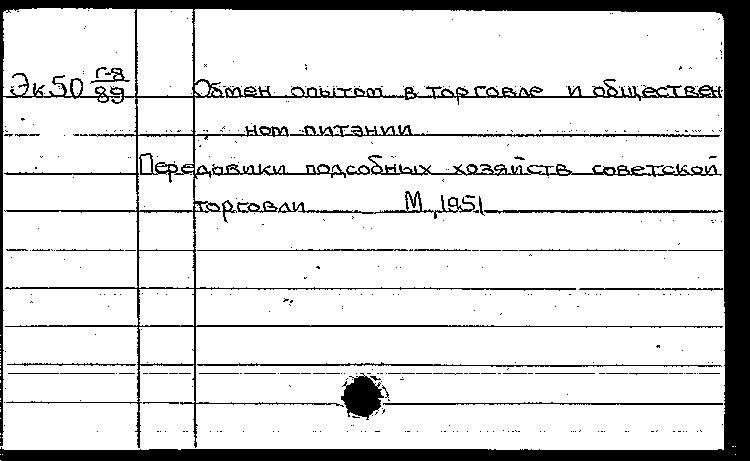 Эк50 г-8/89 Обмен опытом в торговле и обществен
ном питании
Передовики подсобных хозяйств советской
торговли М, 1951